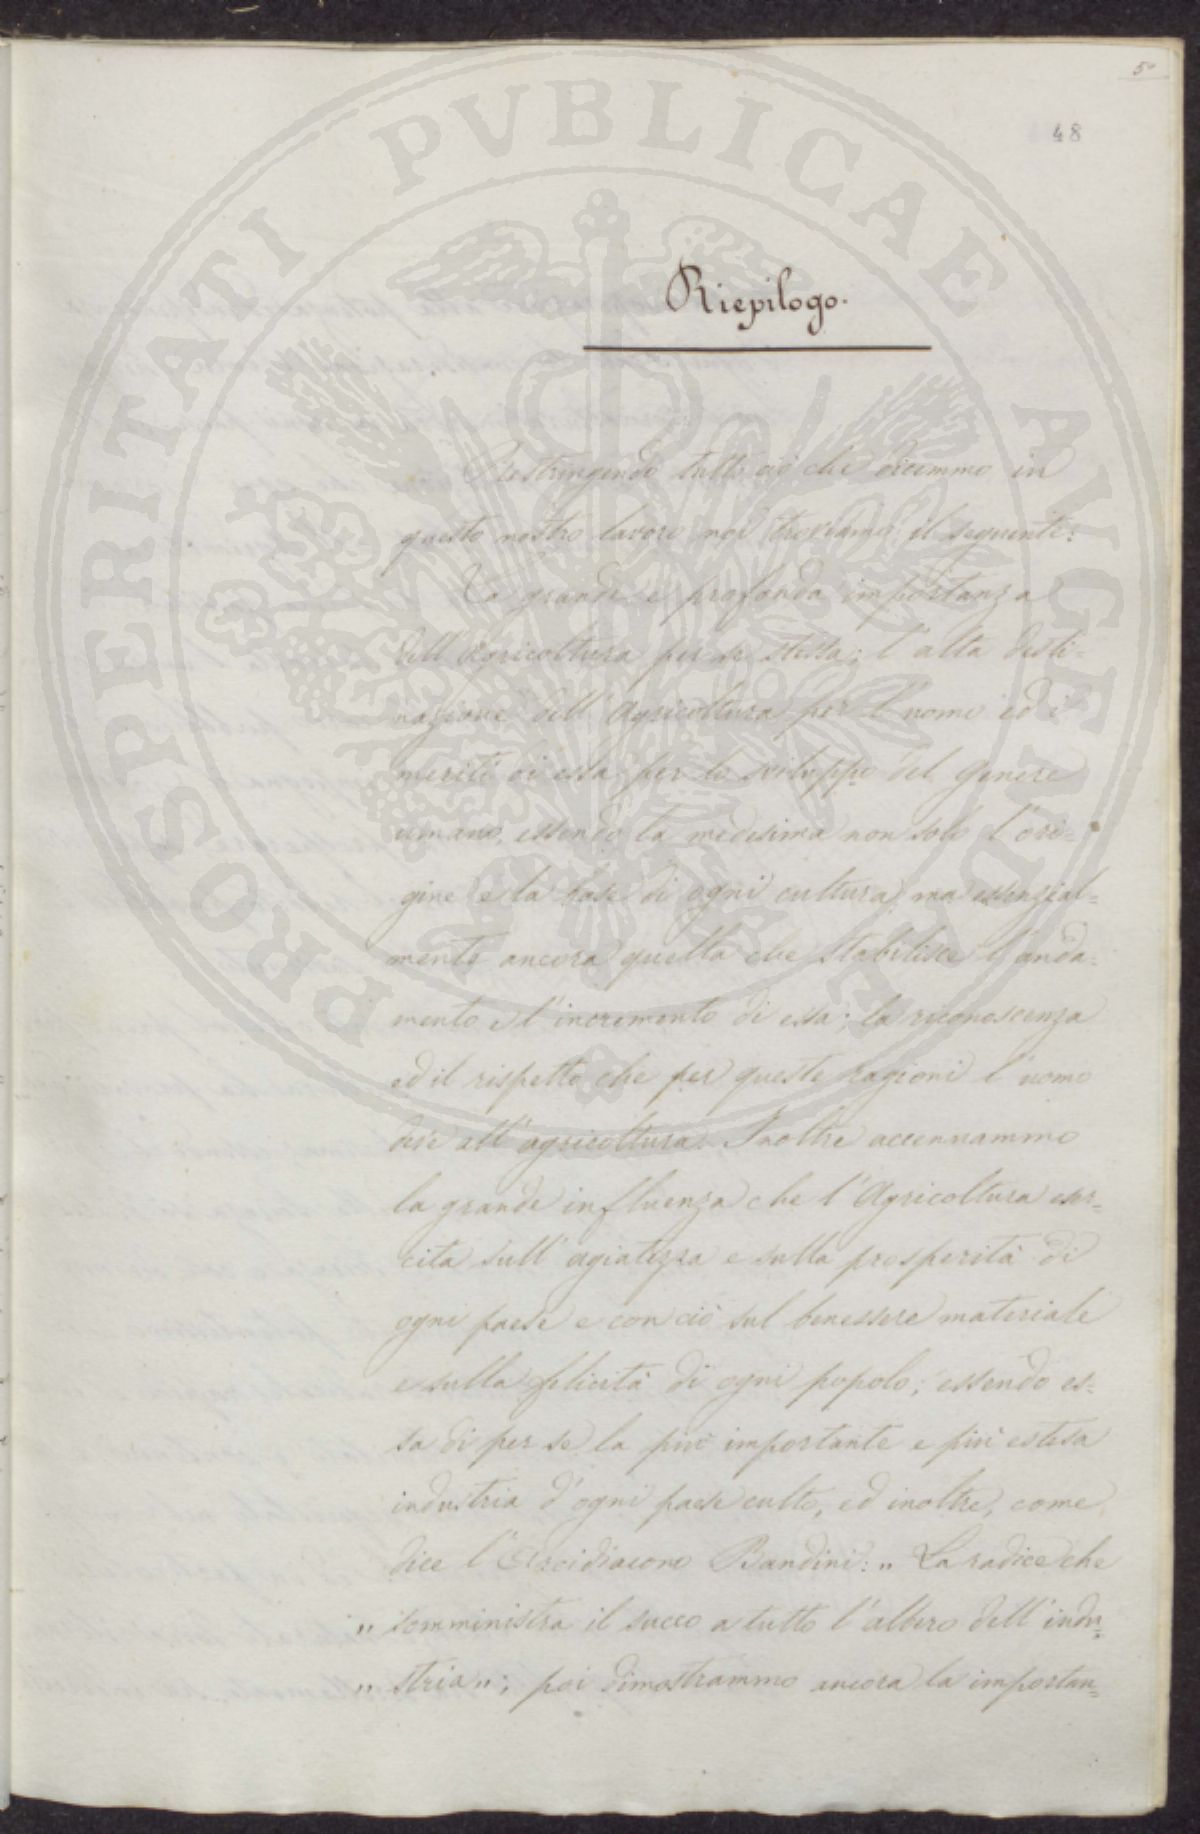 5º
48
PROSPERITATI PUBLICAE AVGENDAE
Riepilogo.
Restringendo tutto ciò che dicemmo in
questo nostro lavoro noi troviamo il seguente:
La grande e profonda importanza
dell'Agricoltura per se stessa; l'alta desti=
nazione dell'Agricoltura per l'uomo ed i
meriti di essa per lo sviluppo del genere
umano, essendo la medesima non solo l'ori=
gine e la base di ogni cultura, ma essenzial=
mente ancora quella che stabilisce l'anda=
mento e l'incremento di essa; la riconoscenza
ed il rispetto che per queste ragioni l'uomo
deve all'agricoltura. Inoltre accennammo
la grande influenza che l'Agricoltura eser=
cita sull'agiatezza e sulla prosperità di
ogni paese e con ciò sul benessere materiale
e sulla felicità di ogni popolo; essendo es=
sa di per se la più importante e più estesa
industria d'ogni paese culto, ed inoltre, come
dice l'Arcidiacono Bandini: „ La radice che
„ somministra il succo a tutto l'albero dell'indu=
„ stria„; poi dimostrammo ancora la importan=